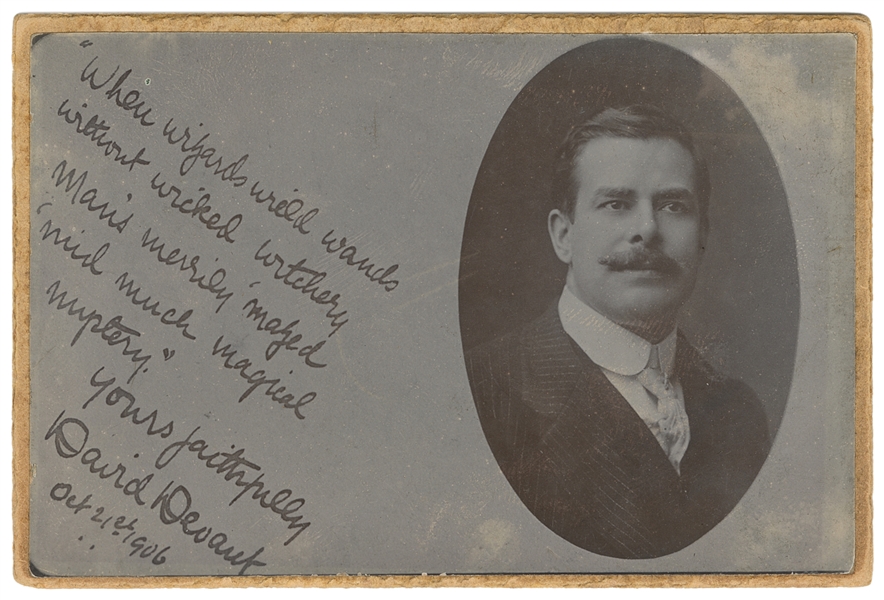 "When wizards wield wands
without wicked witchery
Man's merrily 'mazed
'mid much magical
mystery."
Yours faithfully
David Devant
Oct 21st, 1906